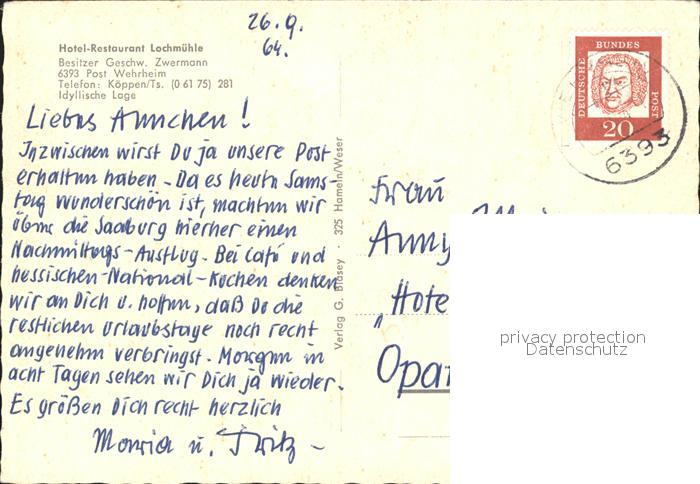 26.9.
64.
Hotel-Restaurant Lochmühle
Besitzer Geschw. Zwermann
6393 Post Wehrheim
Telefon: Köppern/Ts. (0 61 75) 281
Idyllische Lage
Liebes Annchen!
Inzwischen wirst Du ja unsere Post
erhalten haben. Da es heute Sams-
tag wunderschön ist, machten wir
über die Saalburg hierher einen
Nachmittags-Ausflug. Bei Café und
hessischen-National-Kuchen denken
wir an Dich u. hoffen, daß Du die
restlichen Urlaubstage noch recht
angenehm verbringst. Morgen in
acht Tagen sehen wir Dich ja wieder.
Es grüßen Dich recht herzlich
Maria u. Fritz –
Verlag G. Blasey · 325 Hameln/Weser
DEUTSCHE BUNDES POST
20
6393
Frau
Anny
"Hote
Opa
privacy protection
Datenschutz